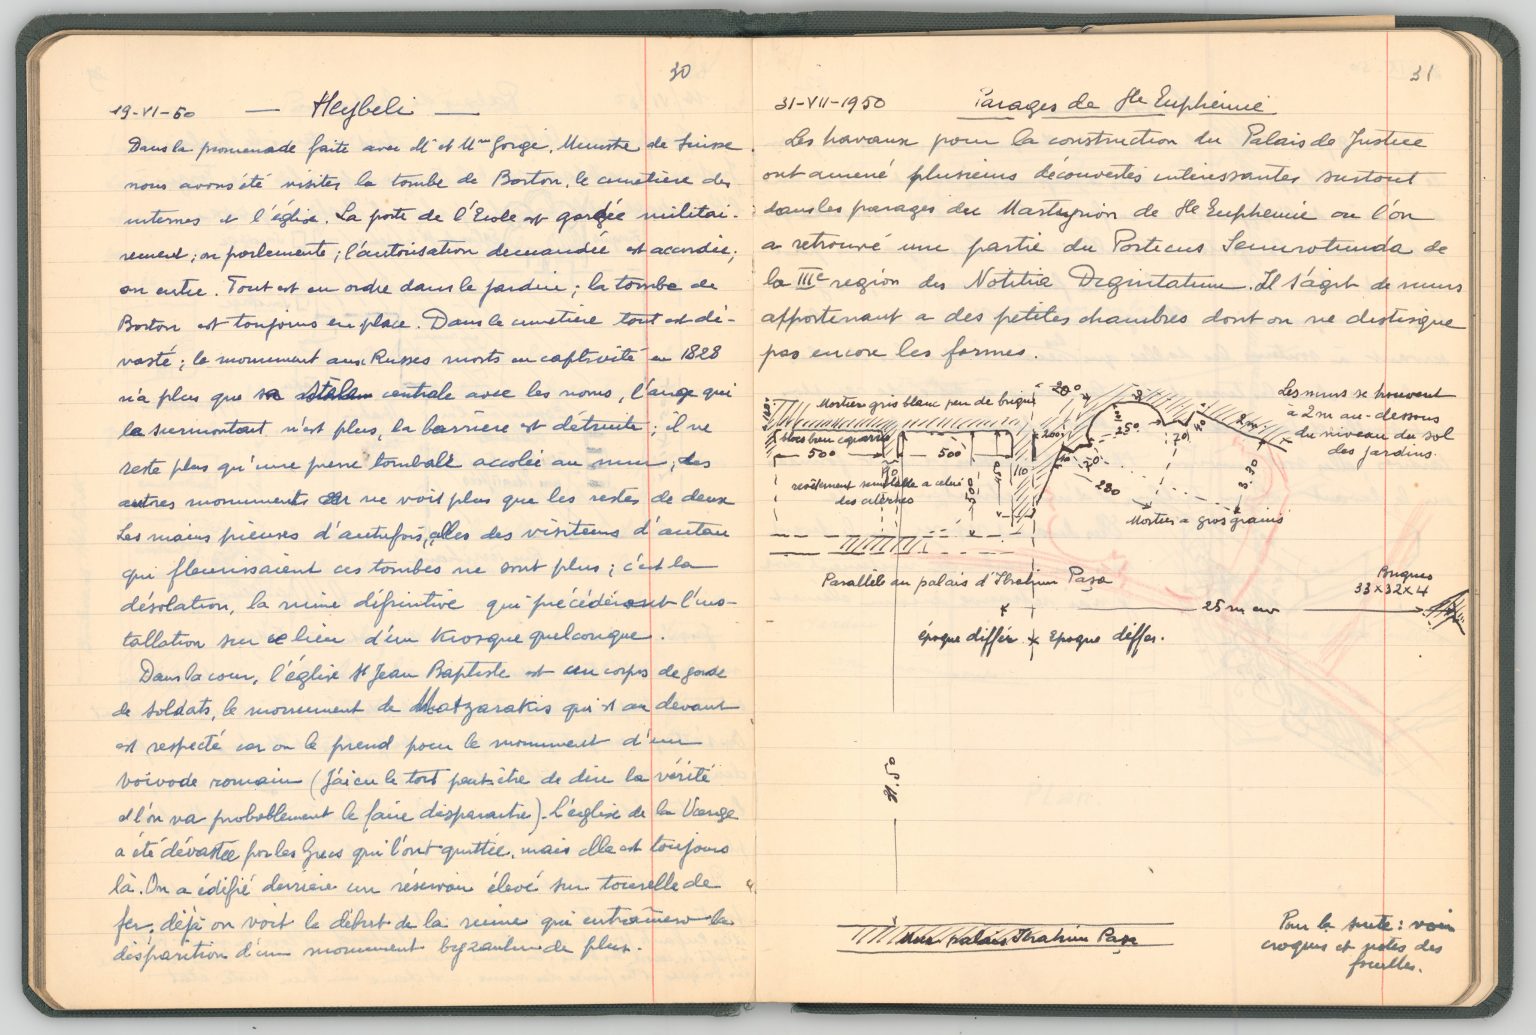 30
19-VI-50 — Heybeli —
Dans la promenade faite avec M et Mme Gorgé, Ministre de Suisse
nous avons été visiter la tombe de Barton, le cimetière des
internes et l'église. La porte de l'Ecole est gardée militai-
rement; on parlemente; l'autorisation demandée est accordée;
on entre. Tout est en ordre dans le jardin; la tombe de
Barton est toujours en place. Dans le cimetière tout est dé-
vasté; le monument aux Russes morts en captivité en 1828
n'a plus que sa centrale avec les noms, l'ange qui
le surmontait n'est plus, la barrière est détruite; il ne
reste plus qu'une pierre tombale accolée au mur; des
autres monuments on ne voit plus que les restes de deux
Les mains pieuses d'autrefois, celles des visiteurs d'antan
qui fleurissaient ces tombes ne sont plus; c'est la
désolation, la ruine définitive qui précéderont l'ins-
tallation sur ce lieu d'un Kiosque quelconque.
Dans la cour, l'église St Jean Baptiste est un corps de garde
de soldats, le monument de Matzarakis qui est au devant
est respecté car on le prend pour le monument d'un
voivode roumain (J'ai eu le tort peut-être de dire la vérité
et l'on va probablement le faire disparaitre). L'église de la Vierge
a été dévastée par les Grecs qui l'ont quittée, mais elle est toujours
là. On a édifié derrière un réservoir élevé sur tourelle de
fer, déjà on voit le début de la ruine qui entraînera la
disparition d'un monument byzantin de plus.
31
31-VII-1950 Parages de Ste Euphémie
Les travaux pour la construction du Palais de Justice
ont amené plusieurs découvertes intéressantes surtout
dans les parages du Martyrion de Ste Euphémie ou l'on
a retrouvé une partie du Porticus Semirotunda de
la IIIe région des Notitia Dignitatum. Il s'agit de murs
appartenant a des petites chambres dont on ne distingue
pas encore les formes.
Les murs se trouvent
à 2m au-dessous
du niveau du sol
des jardins.
Mortier gris blanc peu de brique
blocs bien equarris
500
500
200
250
2m
40
70
20
280
3.30
110
500
revêtement semblable a celui
des citernes
Mortier a gros grains
Parallèle au palais d'Ibrahim Paşa
Briques
33x32x4
25 m env
époque différ x Epoque differ.
31.50
mur palais Ibrahim Paşa
Pour la suite: voir
croquis et notes des
fouilles.